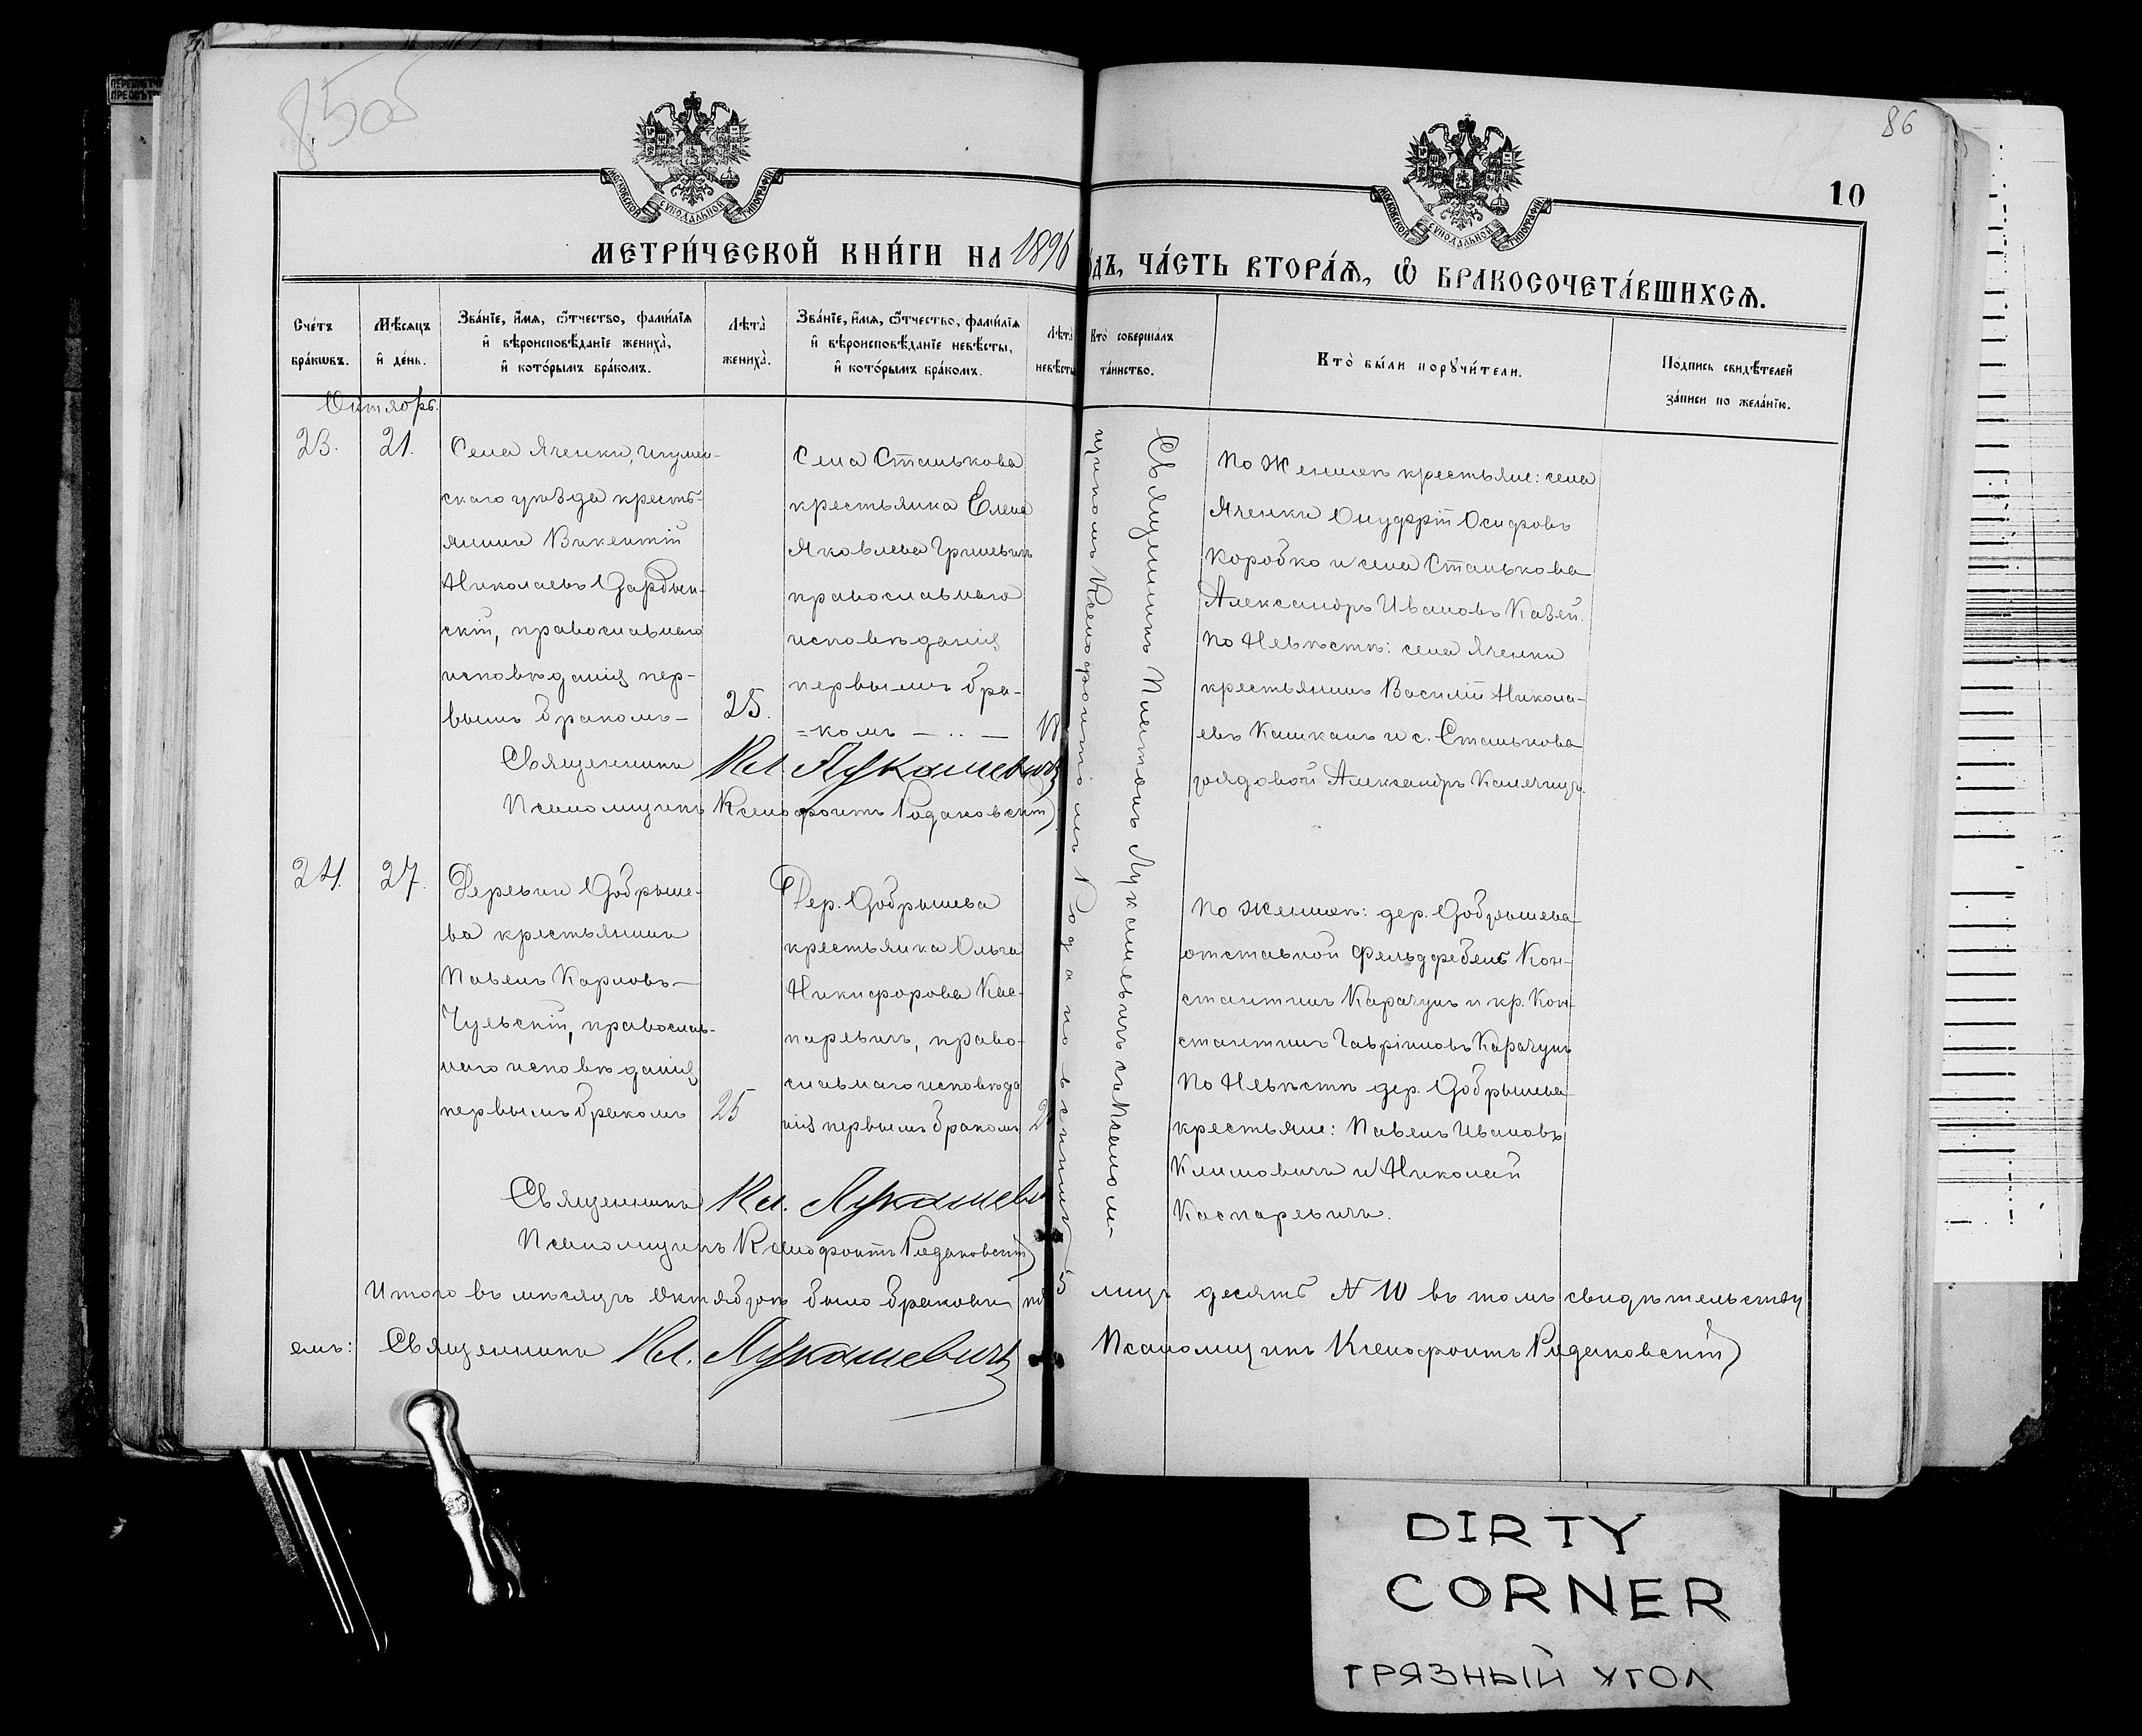 85об
86
10
МОСКОВСКОЙ СѴНОДАЛЬНОЙ ТИПОГРАФІИ
МОСКОВСКОЙ СѴНОДАЛЬНОЙ ТИПОГРАФІИ
МЕТРИ́ЧЕСКОЙ КНИ́ГИ НА 1896
ѻдъ, ЧА́СТЬ ВТОРА́Ѧ, Ѽ БРАКОСОЧЕТА́ВШИХСѦ.
Сче́тъ бра́кѡвъ.
Мѣ́сяцъ и де́нь.
Зва́нїе, и́мѧ, ѻ҆́тчество, фами́лїѧ
и҆ вѣроисповѣ́данїе жениха̀,
и҆ кото́рымъ бра́комъ.
Лѣта̀ жениха̀.
Зва́нїе, и́мѧ, ѻ҆́тчество, фами́лїѧ
и҆ вѣроисповѣ́данїе невѣ́сты,
и҆ кото́рымъ бра́комъ.
Лѣта̀ невѣ́сты
Кто̀ соверша́лъ та́инство.
Кто̀ бы́ли порꙋчи́тели.
По́дпись свидѣ́телей
за́писи по жела́нїю.
Октябрь.
23.
21.
Села Яченки, Игумен-
скаго уѣзда кресть-
янинъ Викентій
Николаевъ
скій, православнаго
исповѣданія пер-
вымъ бракомъ—
25.
Села Станькова
крестьянка Елена
Яковлева Гришевичъ
православнаго
исповѣданія
первымъ бра-
=комъ — .. —
18
Священникъ Пл. Лукашевичъ
Псаломщикъ Ксенофонтъ Родаковскій
Священникъ Платонъ Лукашевичъ съ Псалом-
щикомъ Ксенофонтомъ Родаковскимъ
По Женихѣ крестьяне: села
Яченки Онуфрій Осифовъ
Коробко и села Станькова
Александръ Ивановъ Казей.
По Невѣстѣ: села Яченки
крестьянинъ Василій Никола-
евъ Кашканъ и с. Станькова
рядовой Александръ
24.
27.
Деревни Добрыне-
ва крестьянинъ
Павелъ Карповъ—
Чульскій, православ-
наго исповѣданія
первымъ бракомъ
25
Дер. Добрынева
крестьянка Ольга
Никифорова Кас-
паревичъ, право-
славнаго исповѣда
нія первымъ бракомъ
2
По Женихѣ: дер. Добрынева
отставной Фельдфебель Кон-
стантинъ Карачунъ и кр. Кон-
стантинъ Гавріиловъ Карачунъ
По Невѣстѣ дер. Добрынева
крестьяне: Павелъ Ивановъ
Климовичъ и Николай
Каспаревичъ.
Священникъ Пл. Лукашеви
Псаломщикъ Ксенофонтъ Родаковскій
Итого въ мѣсяцѣ Октябрѣ было браковъ 5 лицъ десять № 10 въ томъ свидѣтельству
емъ: Священникъ Пл. Лукашевичъ Псаломщикъ Ксенофонтъ Родаковскій
DIRTY
CORNER
ГРЯЗНЫЙ УГОЛ